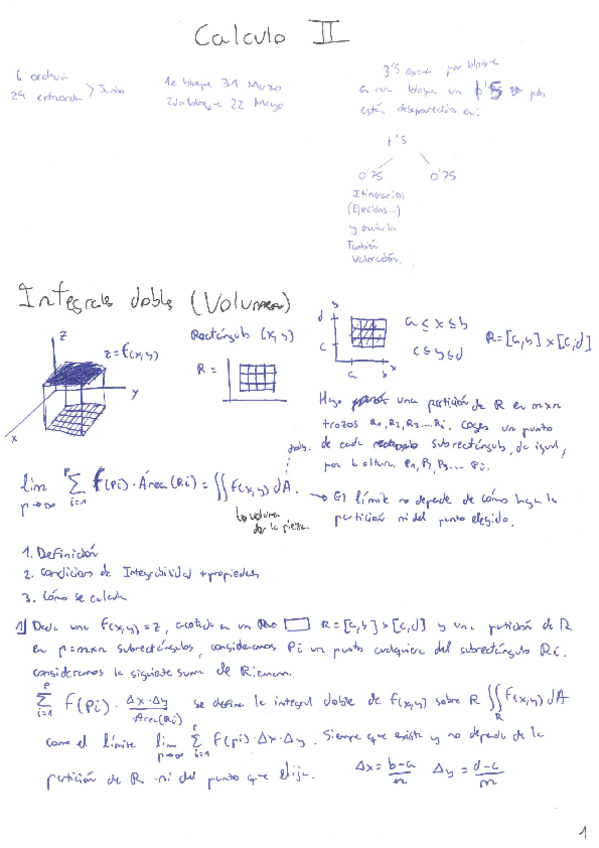 Calculo II
6 ordinaria
29 extraordin > Junio
1er bloque 31 Marzo
2do bloque 22 Mayo
3'5 por bloque
en cada bloque un
están desaparecidos en:
1'5
0'75 0'75
Itinerarios
(Ejercicios...)
y
También
Valoración.
Integrales dobles (Volumen)
z
z=f(x,y)
y
x
Rectángulo (x,y)
R =
d
c
a b x
a ≤ x ≤ b
c ≤ y ≤ d
R=[a,b] x [c,d]
Hago una partición de R en mxn
trozos R1, R2, R3...Ri. Coges un punto
de cada subrectángulo, da igual,
por la altura P1, P2, P3... Pi.
lim p→∞ Σ i=1 p f(Pi) · Área(Ri) = ∬ f(x,y) dA.
↳ volumen
de la pieza
→ El límite no depende de cómo haga la
partición ni del punto elegido.
1. Definición
2. Condiciones de Integrabilidad + propiedades
3. Cómo se calcula
1) Dada una f(x,y)=z, acotada en un R=[a,b] x [c,d] y una partición de R
en p=mxn subrectángulos, consideramos Pi un punto cualquiera del subrectángulo Ri.
consideramos la siguiente suma de Riemann.
Σ i=1 p f(Pi) · Δx·Δy Área(Ri) se define la integral doble de f(x,y) sobre R ∬R f(x,y) dA
como el límite lim p→∞ Σ i=1 p f(pi)·Δx·Δy. Siempre que exista y no dependa de la
partición de R ni del punto que elija. Δx = b-a/n Δy = d-c/m
1